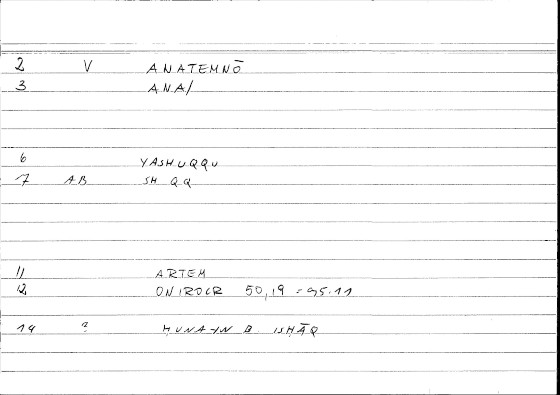 2 V ANATEMNŌ
3 ANA/
6 YASHUQQU
7 AB SH QQ
11 ARTEM
12 ONIROCR 50,19 = 95.11
14 ? ḤUNAYN B. ISḤĀQ